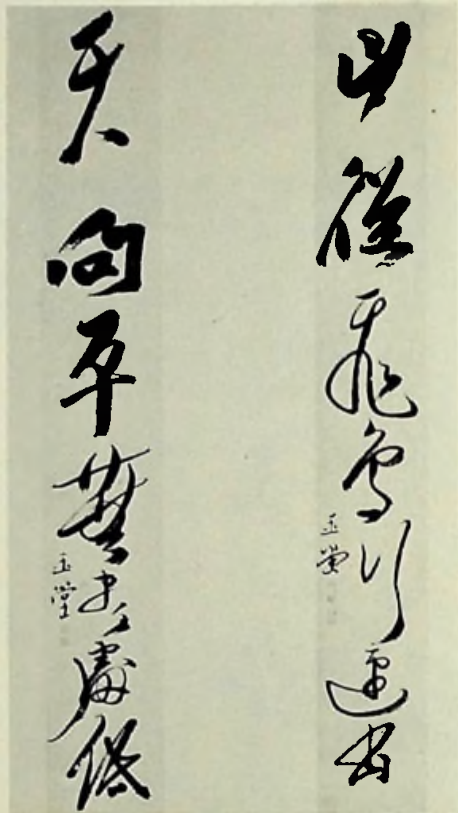 山從飛鳥行邊出
玉堂
天向平蕪盡處低
玉堂